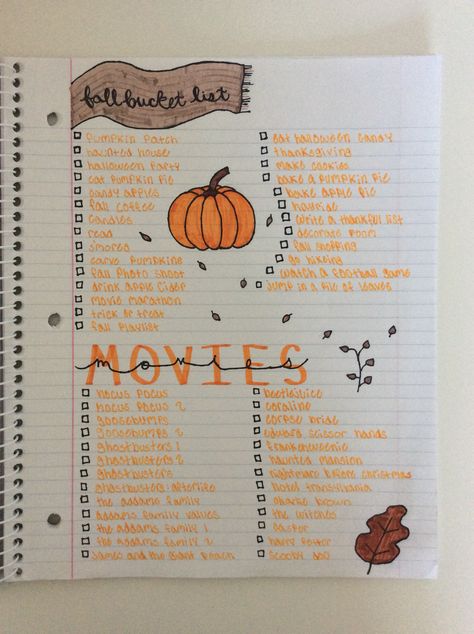 fall bucket list
pumpkin patch
haunted house
halloween party
eat pumpkin pie
candy apples
fall coffee
candles
read
s'mores
carve pumpkins
fall photo shoot
drink apple cider
movie marathon
trick or treat
fall playlist
eat halloween candy
thanksgiving
make cookies
bake a pumpkin pie
bake apple pie
hayride
write a thankful list
decorate room
fall shopping
go hikeing
watch a football game
jump in a pile of leaves
MOVIES
movies
hocus pocus
hocus pocus 2
goosebumps
goosebumps 2
ghostbusters 1
ghostbusters 2
ghostbusters
ghostbusters: afterlife
the addams family
addams family values
the addams family 1
the addams family 2
james and the giant peach
beetlejuice
coraline
corpse bride
edward scissor hands
frankenweenie
haunted mansion
nightmare before christmas
hotel transylvania
charlie brown
the witches
casper
harry potter
scooby doo